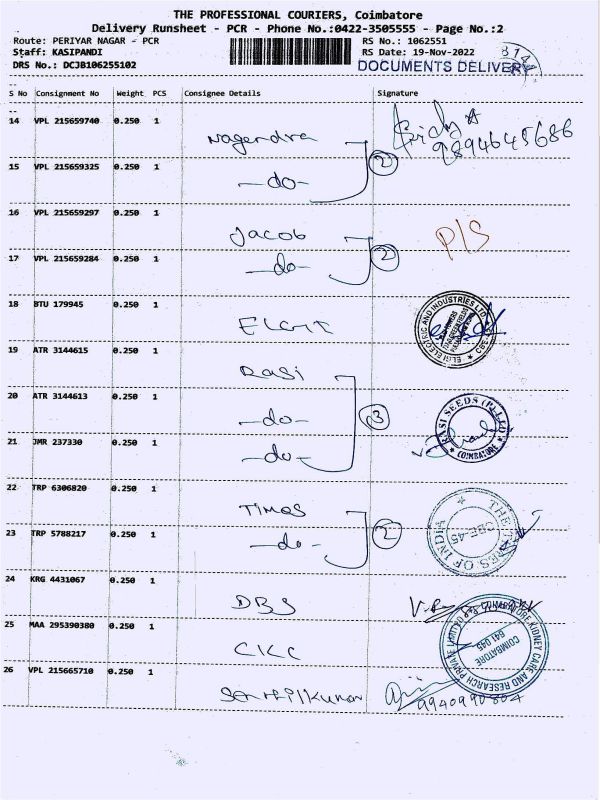 THE PROFESSIONAL COURIERS, Coimbatore
Delivery Runsheet - PCR - Phone No.:0422-3505555 - Page No.:2
Route: PERIYAR NAGAR - PCR
RS No.: 1062551
Staff: KASIPANDI
RS Date: 19-Nov-2022
DRS No.: DCJB106255102
DOCUMENTS DELIVERY
S No Consignment No Weight PCS Consignee Details Signature
14 VPL 215659740 0.250 1
Nagendra
9894645686
15 VPL 215659325 0.250 1
-do-
2
16 VPL 215659297 0.250 1
Jacob
P/S
17 VPL 215659284 0.250 1
-do-
2
18 BTU 179945 0.250 1
ELGI ELECTRIC AND INDUSTRIES LTD.
CBE-
19 ATR 3144615 0.250 1
Rasi
20 ATR 3144613 0.250 1
-do-
3
RASI SEEDS (P) LTD
COIMBATORE
21 JMR 237330 0.250 1
-do-
22 TRP 6306820 0.250 1
Times
THE TIMES OF INDIA
CBE-45
23 TRP 5788217 0.250 1
-do-
2
24 KRG 4431067 0.250 1
DBS
25 MAA 295390380 0.250 1
CKC
COIMBATORE KIDNEY CARE AND RESEARCH PRIVATE LIMITED
COIMBATORE
641 045
26 VPL 215665710 0.250 1
Senthilkumar
9940990804